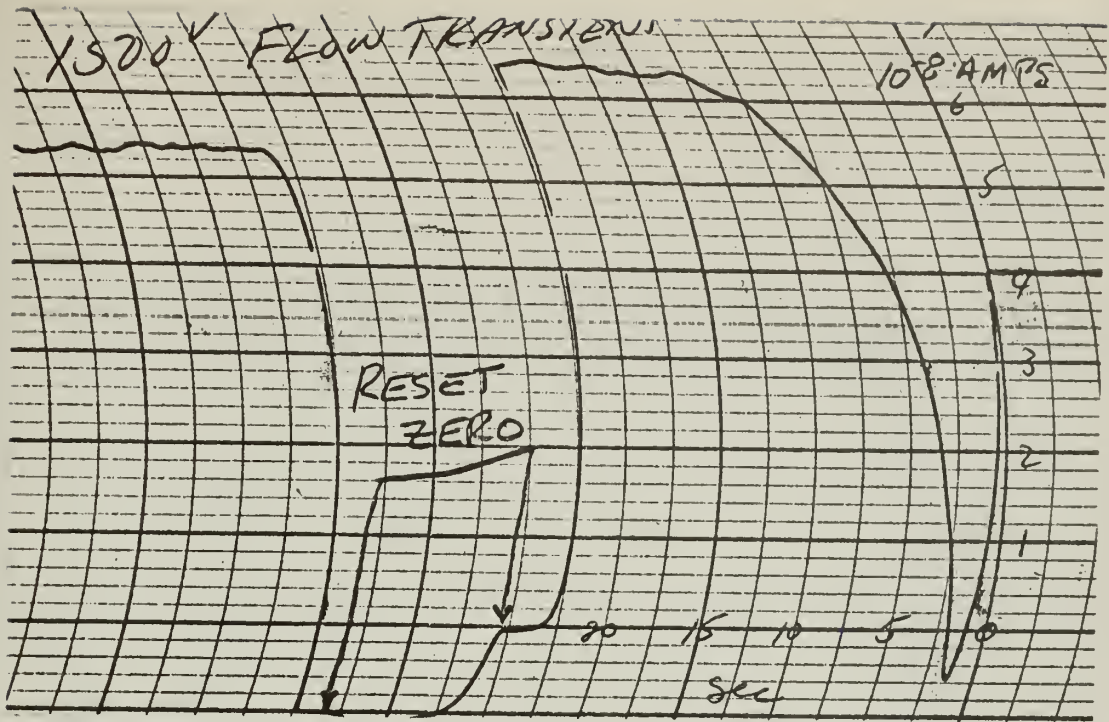 FLOW TRANSIENT
10^-8 AMPS
6
5
4
3
RESET
ZERO
2
1
20 15 10 5 0
Sec